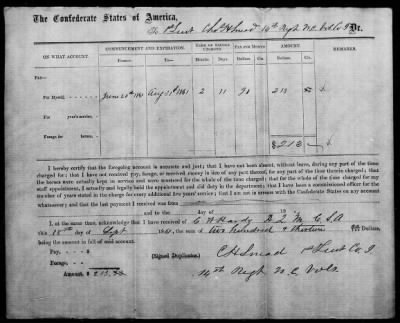 The Confederate States of America,
To 1st Lieut Chas H Snead 14th Regt N.C. Vols Co I Dr.
ON WHAT ACCOUNT.
COMMENCEMENT AND EXPIRATION.
TERM OF SERVICE CHARGED.
PAY PER MONTH
AMOUNT.
REMARKS.
From—
To—
Months
Days
Dollars.
Cts.
Dollars.
Cts.
PAY—
For Myself,
June 20th 1861
Aug 31st 1861
2
11
90
213
For years' service,
Forage for horses,
$213
I hereby certify that the foregoing account is accurate and just; that I have not been absent, without leave, during any part of the time
charged for; that I have not received pay, forage, or received money in lieu of any part thereof, for any part of the time therein charged; that
the horses were actually kept in service and were mustered for the whole of the time charged; that for the whole of the time charged for my
staff appointment, I actually and legally held the appointment and did duty in the department; that I have been a commissioned officer for the
number of years stated in the charge for every additional five years' service; that I am not in arrears with the Confederate States on any account
whatsoever; and that the last payment I received was from
and to the day of
I, at the same time, acknowledge that I have received of C. H. Hardy
C S A
this 18th day of Sept 1861, the sum of two hundred & thirteen Dollars,
being the amount in full of said account.
Pay, - - - $
Forage, - - $
Amount, $ 213.
(Signed Duplicates.)
C H Snead 1st Lieut Co I
14th Regt N.C. Vols